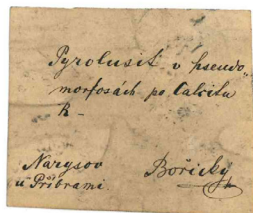 Pyrolusit v pseudo„
morfosách po Calcitu
R –
Narysov
u Příbrami Bořicky